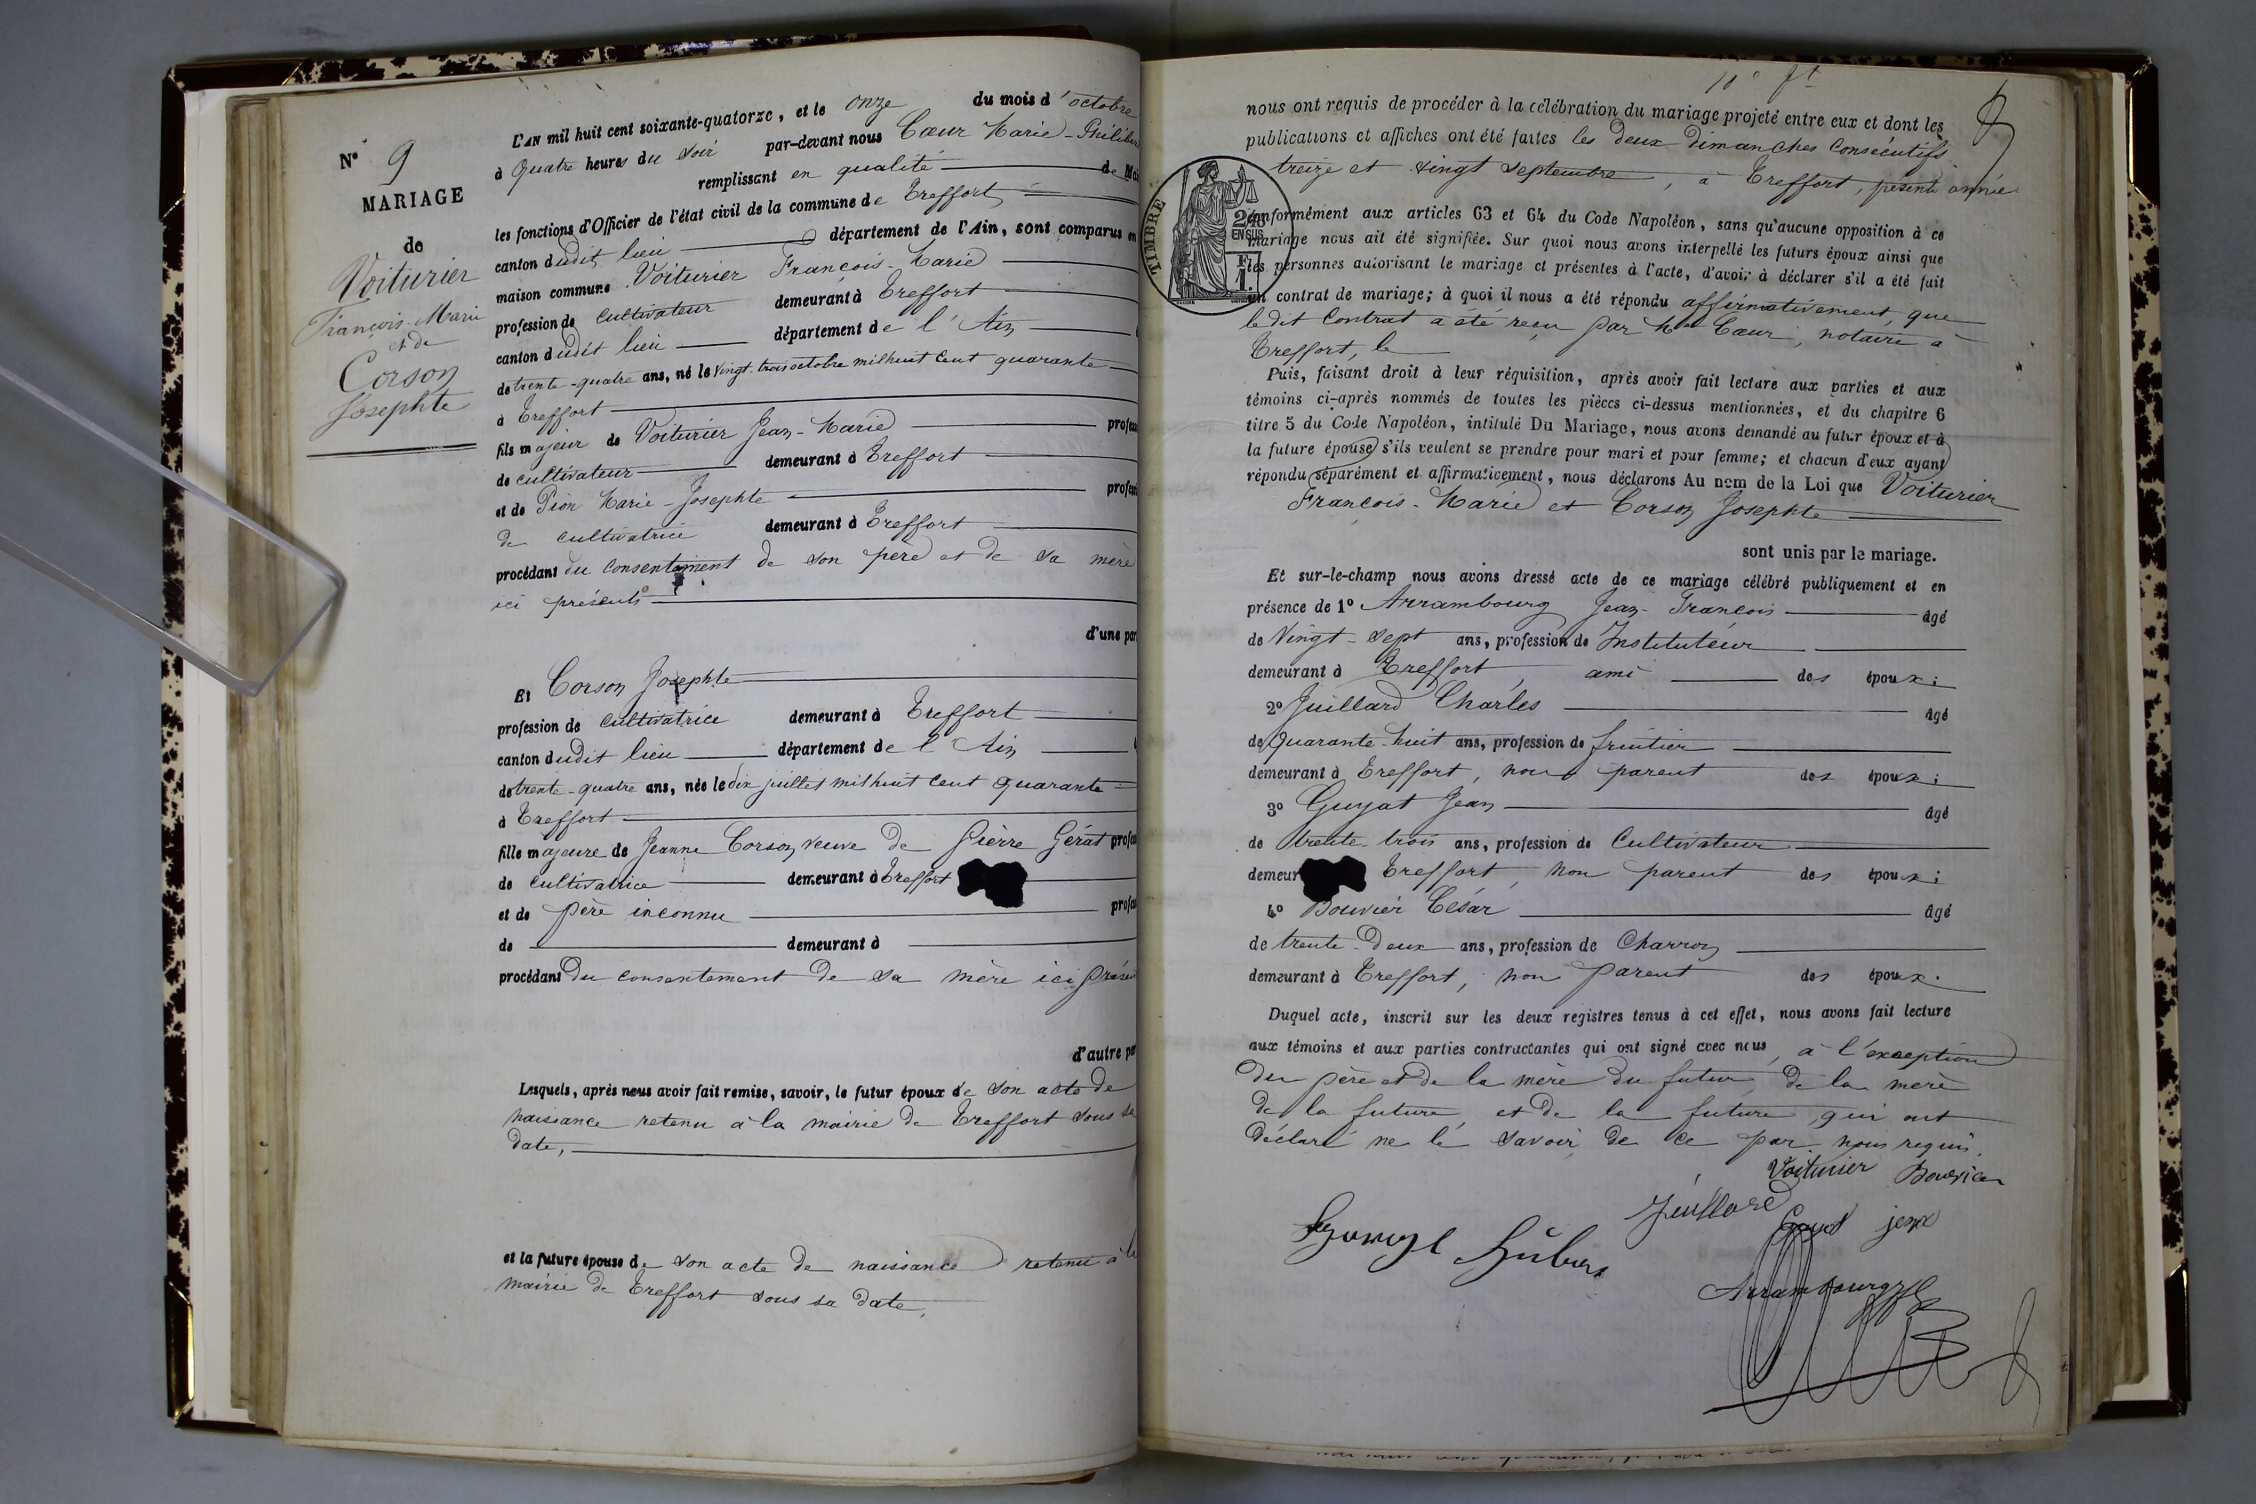 N° 9
MARIAGE
de
Voiturier
François-Marie
et de
Corson
Josephte
L'AN mil huit cent soixante-quatorze, et le onze du mois d'octobre
à Quatre heures du soir par-devant nous Cœur Marie-Philiber
remplissant en qualité de Ma
les fonctions d'Officier de l'état civil de la commune de Treffort
canton dudit lieu département de l'Ain, sont comparus en
maison commune Voiturier François-Marie
profession de cultivateur demeurant à Treffort
canton dudit lieu département de l'Ain
de trente-quatre ans, né le vingt-trois octobre mil huit cent quarante
à Treffort
fils majeur de Voiturier Jean-Marie profess
de cultivateur demeurant à Treffort
et de Pion Marie-Josephte professi
de cultivatrice demeurant à Treffort
procédant du consentement de son père et de sa mère
ici présents
d'une par
Et Corson Josephte
profession de cultivatrice demeurant à Treffort
canton dudit lieu département de l'Ain
de trente-quatre ans, née le dix juillet mil huit cent quarante
à Treffort
fille majeure de Jeanne Corson veuve de Pierre Gérat profes
de cultivatrice demeurant à Treffort
et de père inconnu profes
de demeurant à
procédant du consentement de sa mère ici présen
d'autre par
Lesquels, après nous avoir fait remise, savoir, le futur époux de son acte de
naissance retenu à la mairie de Treffort sous sa
date,
et la future épouse de son acte de naissance retenu à la
mairie de Treffort sous sa date,
10e ft
nous ont requis de procéder à la célébration du mariage projeté entre eux et dont les
publications et affiches ont été faites les deux dimanches consécutifs
treize et vingt septembre, à Treffort, présente année
conformément aux articles 63 et 64 du Code Napoléon, sans qu'aucune opposition à ce
mariage nous ait été signifiée. Sur quoi nous avons interpellé les futurs époux ainsi que
les personnes autorisant le mariage et présentes à l'acte, d'avoir à déclarer s'il a été fait
un contrat de mariage; à quoi il nous a été répondu affirmativement, que
ledit contrat a été reçu par Me Cœur, notaire à
Treffort, le
TIMBRE
2/10
EN SUS
F.
1.
Puis, faisant droit à leur réquisition, après avoir fait lecture aux parties et aux
témoins ci-après nommés de toutes les pièces ci-dessus mentionnées, et du chapitre 6
titre 5 du Code Napoléon, intitulé Du Mariage, nous avons demandé au futur époux et à
la future épouse s'ils veulent se prendre pour mari et pour femme; et chacun d'eux ayant
répondu séparément et affirmativement, nous déclarons Au nom de la Loi que Voiturier
François-Marie et Corson Josephte
sont unis par le mariage.
Et sur-le-champ nous avons dressé acte de ce mariage célébré publiquement et en
présence de 1° Arrambourg Jean-François âgé
de vingt-sept ans, profession de Instituteur
demeurant à Treffort, ami des époux;
2° Juillard Charles âgé
de quarante-huit ans, profession de fruitier
demeurant à Treffort, non parent des époux;
3° Guyat Jean âgé
de trente-trois ans, profession de Cultivateur
demeur Treffort, non parent des époux;
4° Bouvier César âgé
de trente-deux ans, profession de Charron
demeurant à Treffort, non parent des époux.
Duquel acte, inscrit sur les deux registres tenus à cet effet, nous avons fait lecture
aux témoins et aux parties contractantes qui ont signé avec nous, à l'exception
du père et de la mère du futur, de la mère
de la future et de la future qui ont
déclaré ne le savoir de ce par nous requis.
Voiturier Bouvier
Juillard
Guyat jean
Arrambourg